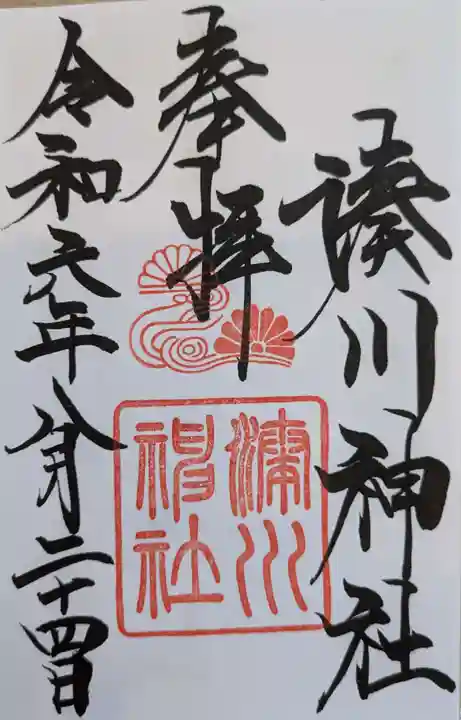 湊川神社
奉拝
湊川神社
令和元年八月二十四日